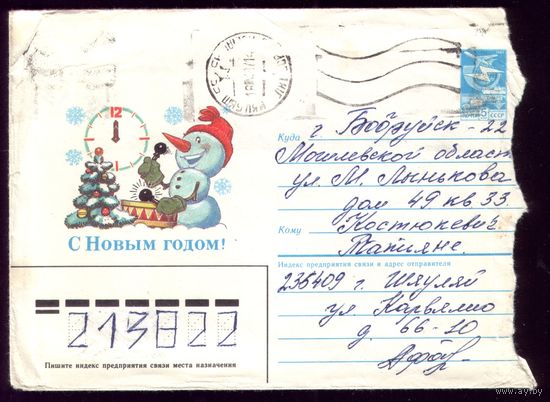 12
1
С Новым годом!
5к
ПОЧТА СССР
Куда
г. Бобруйск - 22
Могилевской област
ул. М. Лынькова
дом 49 кв 33
Кому
Костюкевич
Татьяне.
Индекс предприятия связи и адрес отправителя
235409 г. Шяуляй
ул.
д. 66-20
213822
Пишите индекс предприятия связи места назначения
www.ay.by